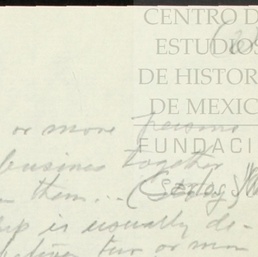 CENTRO D
ESTUDIOS
DE HISTOR
DE MEXIC
FUNDACI
or more persons
business together
them... (Sertog)
ip is usually de-
two or mor